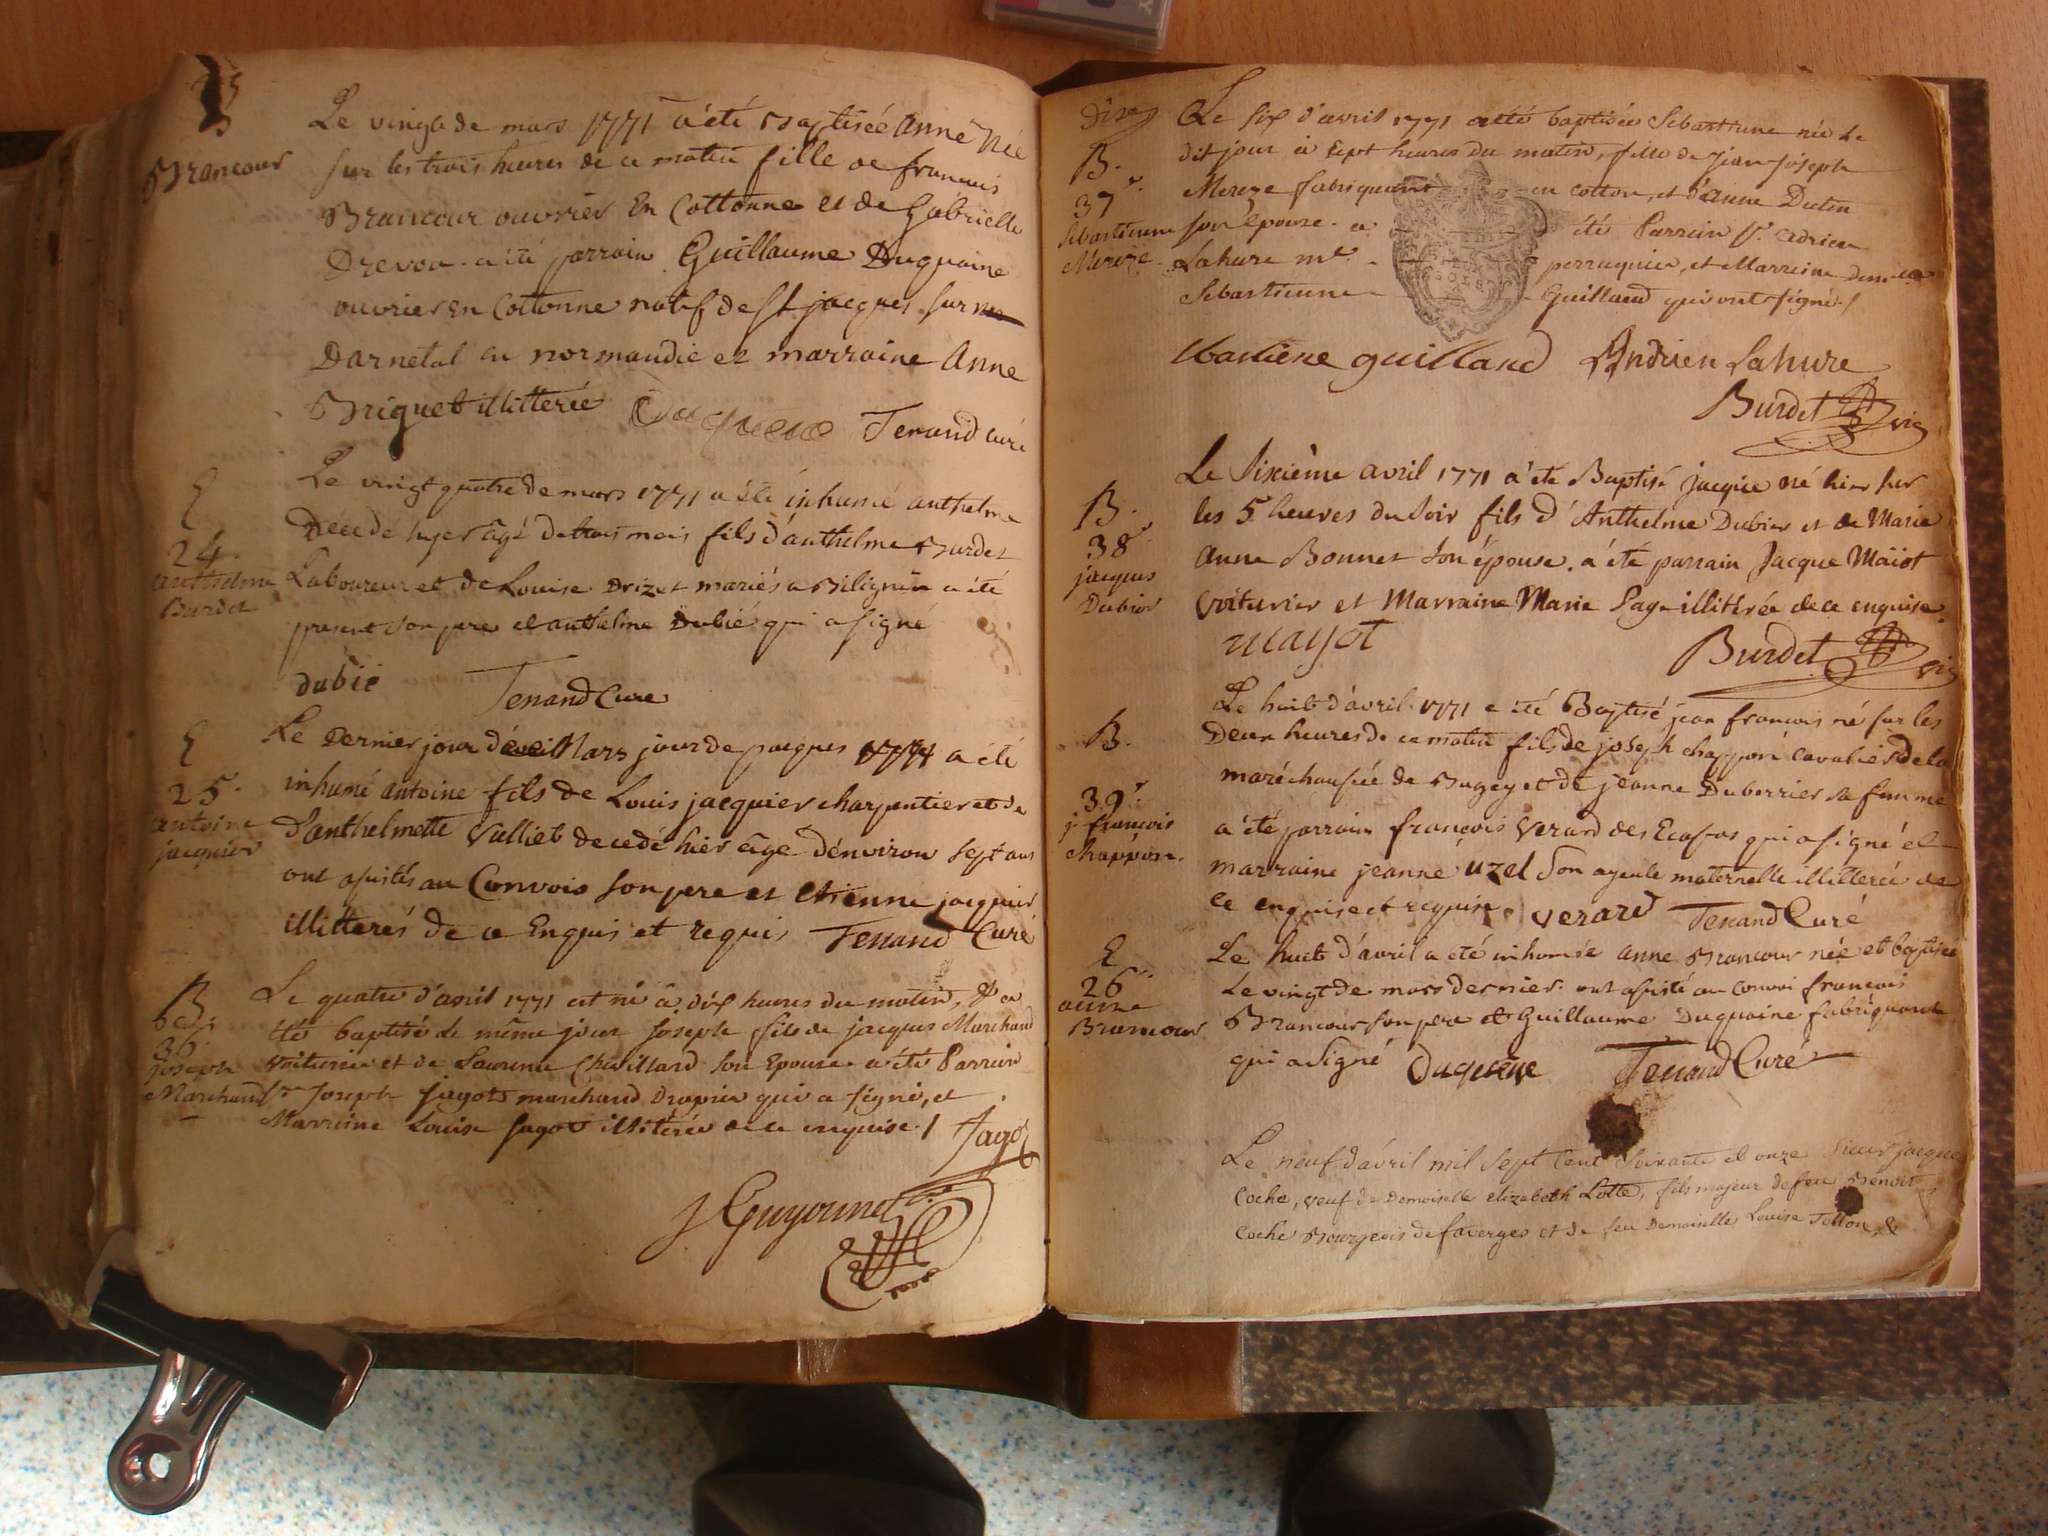 Brancour
Le vingt de mars 1771 a été Baptiseé anne Née
sur les trois heures de ce matin fille de francois
Brancour ouvrier En Cottonne et de Gabrielle
Drevon. a été parrain Guillaume Duquaine
ouvrier En Cottonne natif de st jacques sur
Darnetal en normandie et marraine Anne
Briquet illitterée Duquene Tenand curé
E
24.
anthelme
Burdet
Le vingt quatre de mars 1771 a été inhumé anthelme
Décedé hyer âgé de trois mois fils d'anthelme Burdet
Laboureur et de Louise Drizet mariés a Bilignin a été
present son pere et anthelme Dubié qui a signé
dubié Tenand Cure
E
25.
antoine
jacquier
Le Dernier jour de Mars jour de paques 1771 a été
inhumé antoine fils de Louis jacquier charpentier et de
D'anthelmette Vulliet decedé hier age d'environ sept ans
ont assistés au Convois son pere et Etienne jacquier
illitterés de ce Enquis et requis Tenand Curé
B
36.
joseph
Marchand
Le quatre d'avril 1771 est né à dix heures du matin, & a
été baptisé le même jour Joseph fils de jacques Marchand
voiturier et de Laurence Chuillard son Epouse a été Parrain
Sr. Joseph Jagot marchand Drapier qui a signé, et
Marreine Louise Jagot illitérée de ce enquise. / Jagot
J Guyonnet
B.
37.e
Sebastienne
Mereze
Le six d'avril 1771 a été baptisée Sebastienne née le
dit jour à sept heures du matin, fille de Jean Joseph
Mereze fabriquant en cotton, et d'anne Dutin
son épouse. a étés Parrein Sr. Adrien
Lahure me. perruquier, et Marreine Demelle
Sebastienne Guilland qui ont signé. /
bastiene guilland Andrien Lahure
Burdet vic
B.
38.e
jacques
Dubier
Le Sixième avril 1771 a été Baptisé jacque né hier sur
les 5 heures du soir fils d'Anthelme Dubier et de Marie
Anne Bonnet son épouse. a été parrain Jacque Maïot
voiturier et Marraine Marie Page illitérée de ce enquise.
mayot Burdet vic
B.
39.e
j. françois
chappon.
Le huit d'avril 1771 a été Baptisé jean francois né sur les
Deux heures de ce matin fils de joseph chappon cavalier de la
maréchaussée de Bugey et de jeanne Duborrier sa femme
a été parrain françois Verard des Ecassas qui a signé et
marraine jeanne uzel son ayeule maternelle illitterée de
ce enquise et requise. verard Tenand Curé
E
26.
anne
Brancour
Le huit d'avril a été inhumée anne Brancour née et baptisée
Le vingt de mars dernier. ont assisté au convoi francois
Brancour son pere et Guillaume Duquaine fabriquant
qui a signé Duquene Tenand Curé
Le neuf d'avril mil sept cent soixante et onze sieur jacque
Coche, veuf de Demoiselle elizabeth Lotte, fils majeur de feu Benoit
Coche Bourgeois de faverges et de feu Demoiselle Louise Tellon, &